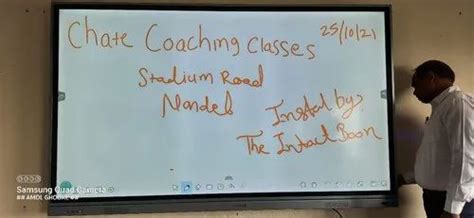 Chate Coaching Classes
25/10/21
Stadium Road
Nanded
Instal by,
The Intact Boon
Samsung Quad Camera
## AMOL GHODKE ##